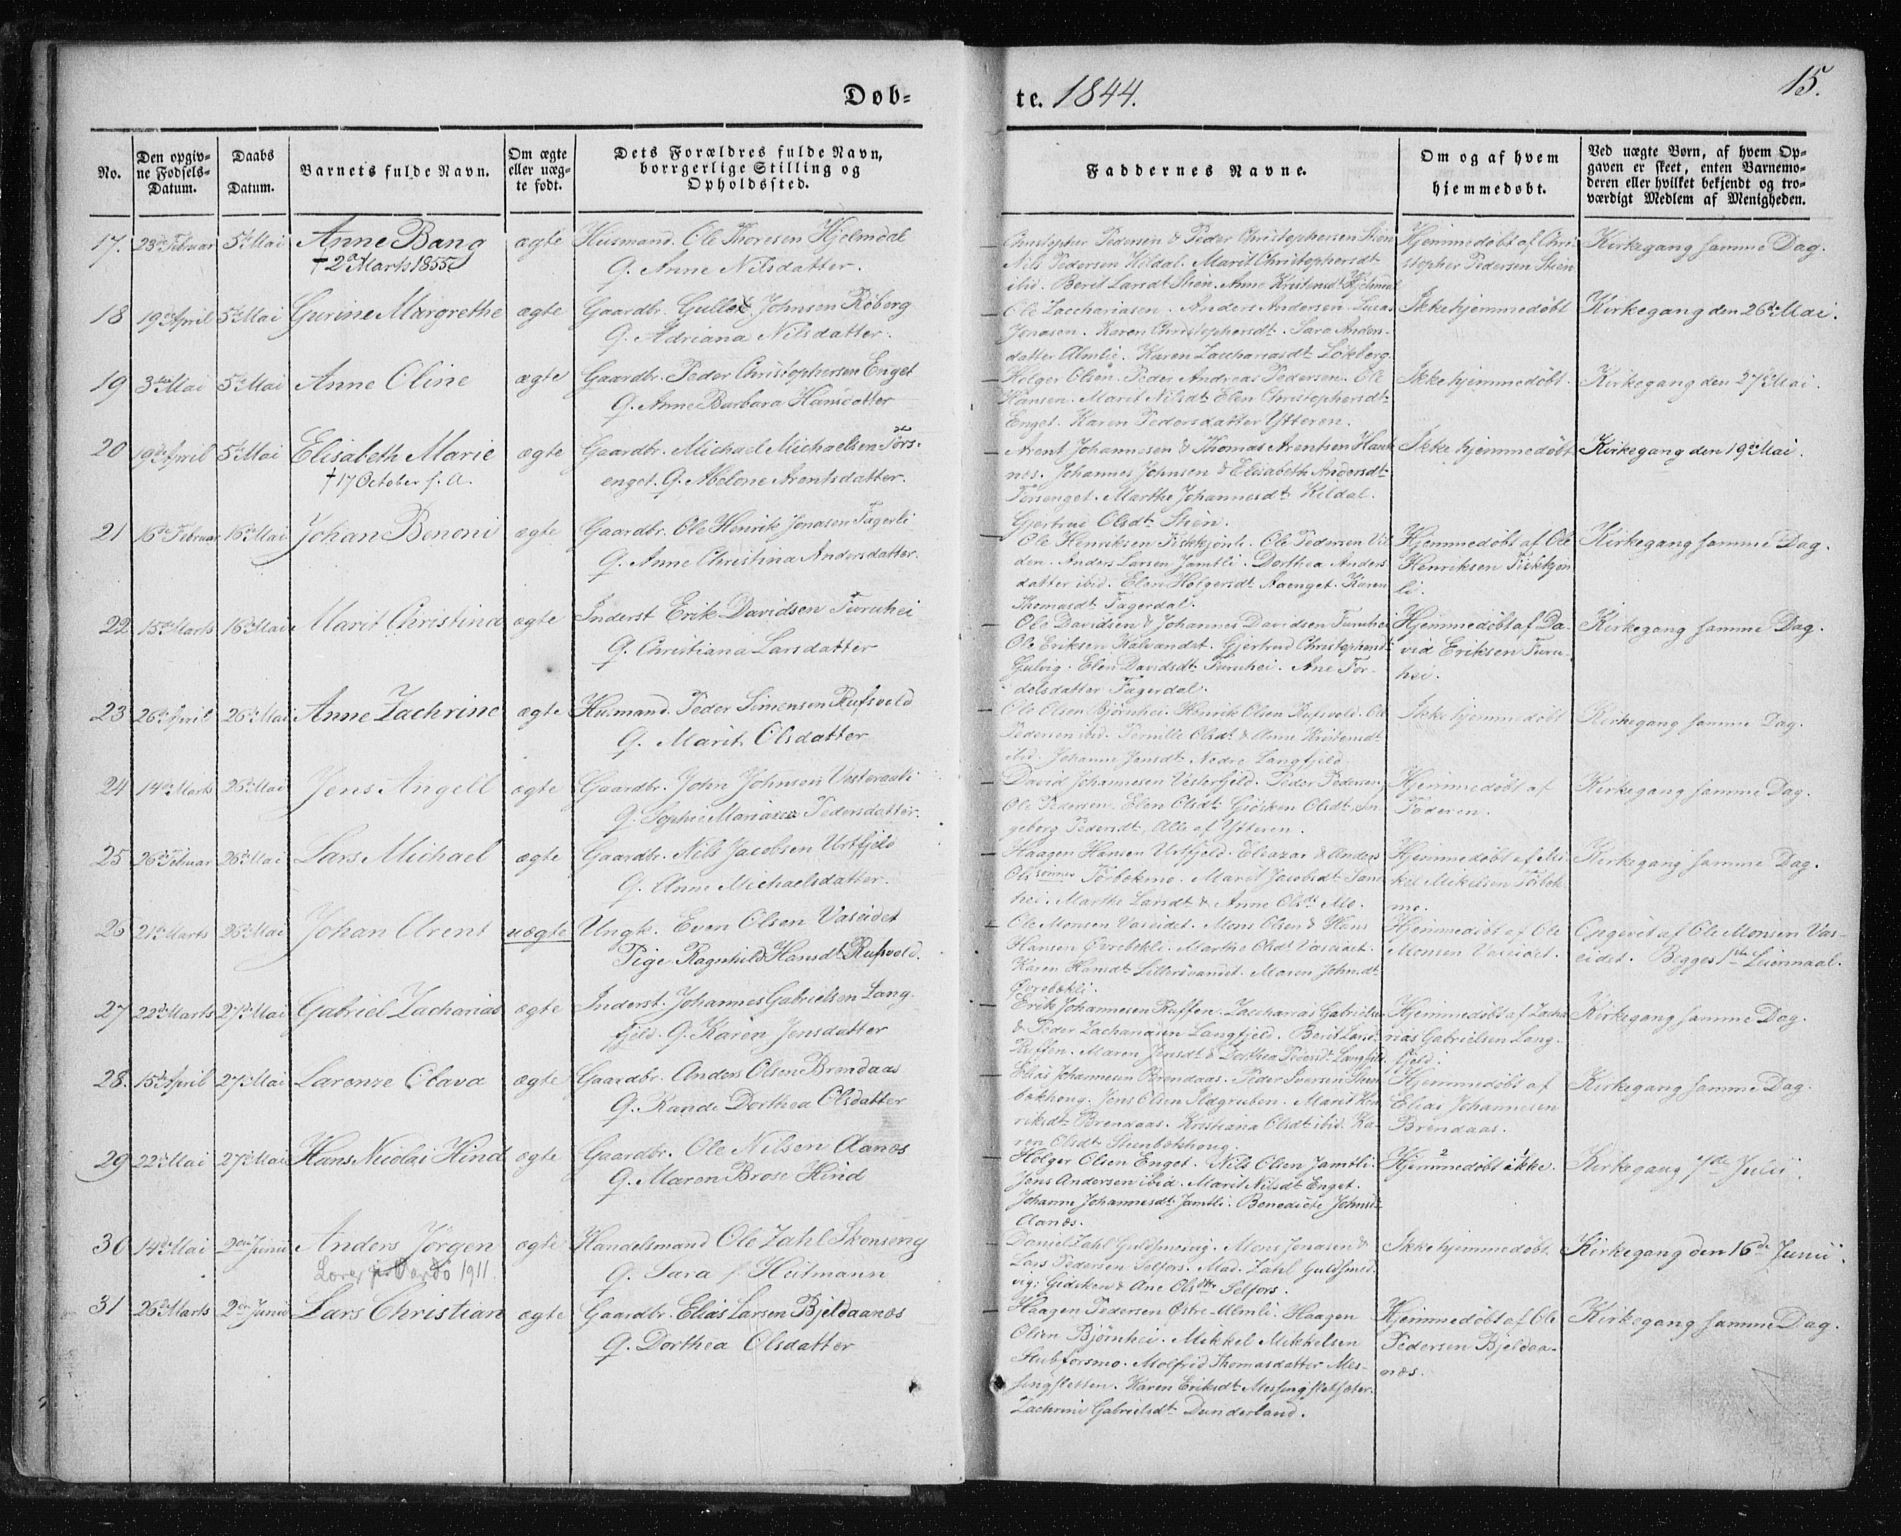 Døb=
te. 1844.
15.
No.
Den opgiv-
ne Fødsels-
Datum.
Daabs
Datum.
Barnets fulde Navn.
Om ægte
eller uæg-
te født.
Dets Forældres fulde Navn,
borrgerlige Stilling og
Opholdssted.
Faddernes Navne.
Om og af hvem
hjemmedøbt.
Ved uægte Børn, af hvem Op-
gaven er skeet, enten Barnemo-
deren eller hvilket bekjendt og tro-
værdigt Medlem af Menigheden.
17. 23de Februar 5te Mai Anne Bang ægte Husmand. Ole Thoresen Hjelmdal
† 2den Marts 1855
Q. Anne Nilsdatter.
Christopher Pedersen & Peder Christophersen Stien
Nils Pedersen Kildal. Marit Christophersdt
ibid. Berit Larsdt Stien. Anne Kristensdt Hjelmdal
Hjemmedøbt af Chri-
stopher Pedersen Stien
Kirkegang samme Dag.
18 19de April 5te Mai Gurine Margrethe ægte Gaardbr. Johnsen Røberg
Q. Adriana Nilsdatter.
Ole Zacchariasen. Anders Andersen. Lucas
Jonasen. Karen Christophersdt. Sara Anders-
datter Almlie. Karen Zacchariasdt Løkberg
Ikke hjemmedøbt
Kirkegang den 26de Mai.
19 3die Mai 5te Mai Anne Oline ægte Gaardbr. Peder Christophersen Enget
Q. Anne Barbara Hansdatter
Holger Olsen. Peder Andreas Pedersen. Ole
Hansen. Marit Nilsdt Elen Christophersdt
Enget. Karen Pedersdatter Ytteren.
Ikke hjemmedøbt.
Kirkegang den 27de Mai.
20 19de April 5te Mai Elisabeth Marie ægte Gaardbr. Michael Michaelsen Fors-
† 17 October s. A.
enget. Q. Melone Arentsdatter.
Arent Johannesen & Thomas Arentsen Hauk-
nes. Johannes Johnsen & Elisabeth Andersdt
Forsenget. Marthe Johannesdt Kildal.
Gjertrud Olsdt Stien.
Ikke hjemmedøbt
Kirkegang den 19de Mai.
21 16de Februar 16de Mai Johan Benoni ægte Gaardbr. Ole Henrik Jonasen Fagerli
Q. Anne Christina Andersdatter.
Ole Henriksen Fiskkjønli. Ole Pedersen
Anders Larsen Jamtli. Dorthea Anders
datter ibid. Elen Holgersdt Aaenget. Karen
Thomasdt Fagerdal.
Hjemmedøbt af Ole
Henriksen Fiskkjøn-
li.
Kirkegang samme Dag.
22 15de Marts 16de Mai Marit Christina ægte Inderst Erik Davidsen Furuhei
Q. Christiana Larsdatter
Ole Davidsen & Johannes Davidsen Furuhei
Ole Eriksen Kalvandet. Gjertrud Christophersdt
Gulvig. Elen Davidsdt Furuhei. Ane Tor-
delsdatter Fagerdal.
Hjemmedøbt af Da-
vid Eriksen Furu-
hei.
Kirkegang samme Dag.
23 26de April 26de Mai Anne Zachrine ægte Husmand. Peder Simensen Rufsvold
Q. Marit Olsdatter
Ole Olsen Bjørnhei. Henrik Olsen Rufsvold. Ole
Pedersen ibid. Pernille Olsdt & Anne Kristensdt
ibid. Johanne Jensdt Nedre Langfjeld
Ikke hjemmedøbt
Kirkegang samme Dag.
24 14de Marts 26de Mai Jens Angell ægte Gaardbr. John Johnsen Vesteraali
Q. Sophie Mariana Pedersdatter.
David Johannesen Vesterfjeld. Peder Pedersen
Ole Pedersen. Elen Olsdt Gjøsken Olsdt In-
geborg Pedersdt, Alle af Ytteren.
Hjemmedøbt af
Faderen.
Kirkegang samme Dag.
25 26de Februar 26de Mai Lars Michael ægte Gaardbr. Nils Jacobsen Urtfjeld
Q. Anne Michaelsdatter.
Haagen Hansen Urtfjeld. Eleazar & Anders
Olssønner Forbekmo. Marit Jacobsdt
hei. Marthe Larsdt & Anne Olsdt Mo.
Hjemmedøbt af Mi-
kel Mikelsen Forbek-
mo.
Kirkegang samme Dag.
26 21de Marts 26de Mai Johan Arent uægte Ungk. Even Olsen Vaseidet
Pige Ragnhild Hansdt Rufsvold.
Ole Monsen Vaseidet. Mons Olsen & Hans
Hansen Øvrebækli. Marthe Olsdt Vaseidet.
Karen Hansdt Lillerøvandet. Maren Johnsdt
Øvrebækli.
Hjemmedøbt af Ole
Monsen Vaseidet.
Opgivet af Ole Monsen Vas-
eidet. Begges 1ste Leiermaal.
27 22de Marts 27de Mai Gabriel Zacharias ægte Inderst. Johannes Gabrielsen Lang-
fjeld. Q. Karen Jensdatter
Erik Johannesen Ruffen. Zaccharias Gabrielsen
& Peder Zachariasen Langfjeld. Berit Larsdt
Ruffen. Maren Jensdt & Dorthea Pedersdt Langfjeld
Hjemmedøbt af Zacha-
rias Gabrielsen Lang-
fjeld.
Kirkegang samme Dag.
28. 15de April 27de Mai Laronze Olava ægte Gaardbr. Anders Olsen Brendaas
Q. Rande Dorthea Olsdatter
Elias Johannesen Brendaas. Peder Iversen Sten-
bækhoug. Jens Olsen Ildgruben. Marit Hen-
riksdt Brendaas. Kristiana Olsdt ibid. Ka-
ren Olsdt Stenbækhoug.
Hjemmedøbt af
Elias Johannesen
Brendaas.
Kirkegang samme Dag.
29 22de Mai 27de Mai Hans Nicolai Hind ægte Gaardbr. Ole Nilsen Aanæs
Q. Maren Brose Hind
Holger Olsen Enget. Nils Olsen Jamtli.
Jens Andersen ibid. Marit Nilsdt Enget.
Johanne Johannesdt Jamtli. Benedicte Johnsdt
Aanæs.
2 1
Hjemmedøbt ikke.
Kirkegang 7de Julii
30 14de Mai 2den Junii Anders Jørgen ægte Handelsmand Ole Zahl Skonseng
Lærer
Vardø 1911
Q. Sara f. Heitmann
Daniel Zahl Guldsmedvig. Mons Jonasen &
Lars Pedersen Selfors. Mad. Zahl Guldsmed-
vig. Gidsken & Ane Olsdtr Selfors.
Ikke hjemmedøbt.
Kirkegang den 16de Junii.
31 26de Marts 2den Junii Lars Christian ægte Gaardbr. Elias Larsen Bjeldaanæs
Q. Dorthea Olsdatter
Haagen Pedersen Østre Almli. Haagen
Olsen Bjørnhei. Mikkel Mikkelsen
Stubforsmo. Molfrid Thomasdatter Mes-
singsletten. Karen Eriksdt Messingsletsæter.
Zachrine Gabrielsdt Dunderland.
Hjemmedøbt af Ole
Pedersen Bjeldaa-
næs.
Kirkegang samme Dag.